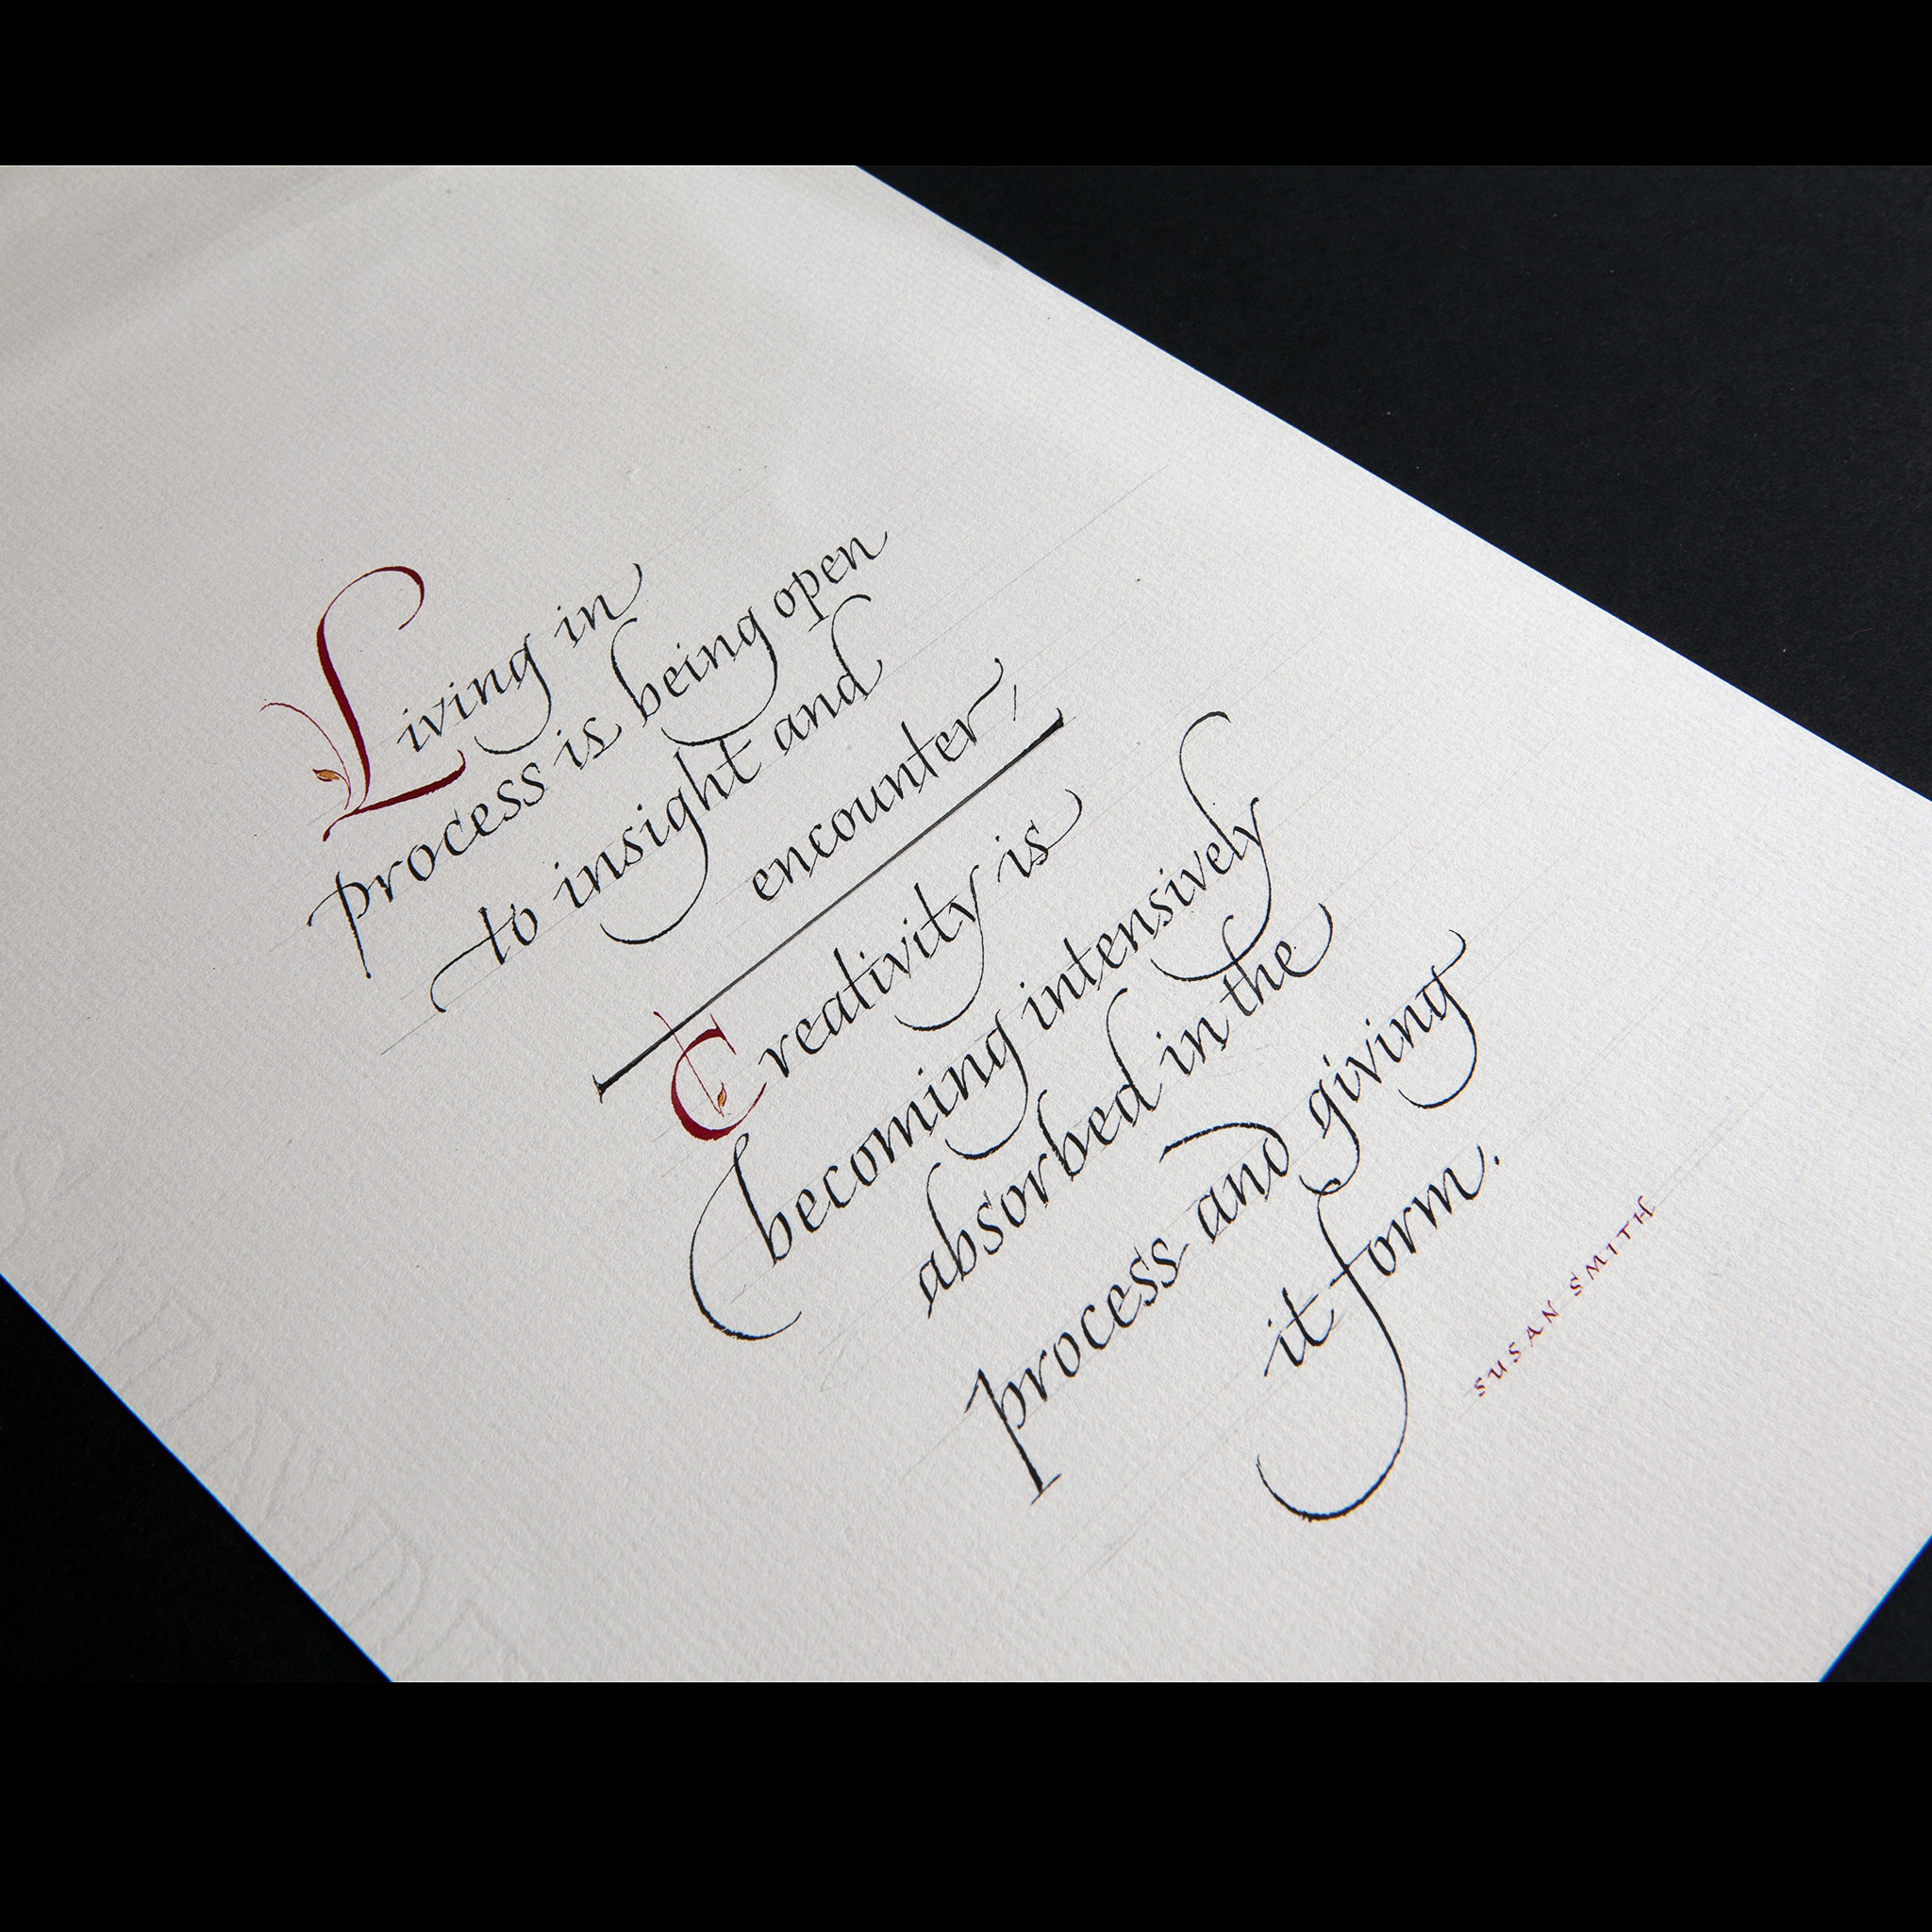 Living in
process is being open
to insight and
encounter,
Creativity is
becoming intensively
absorbed in the
process and giving
it form.
SUSAN SMITH